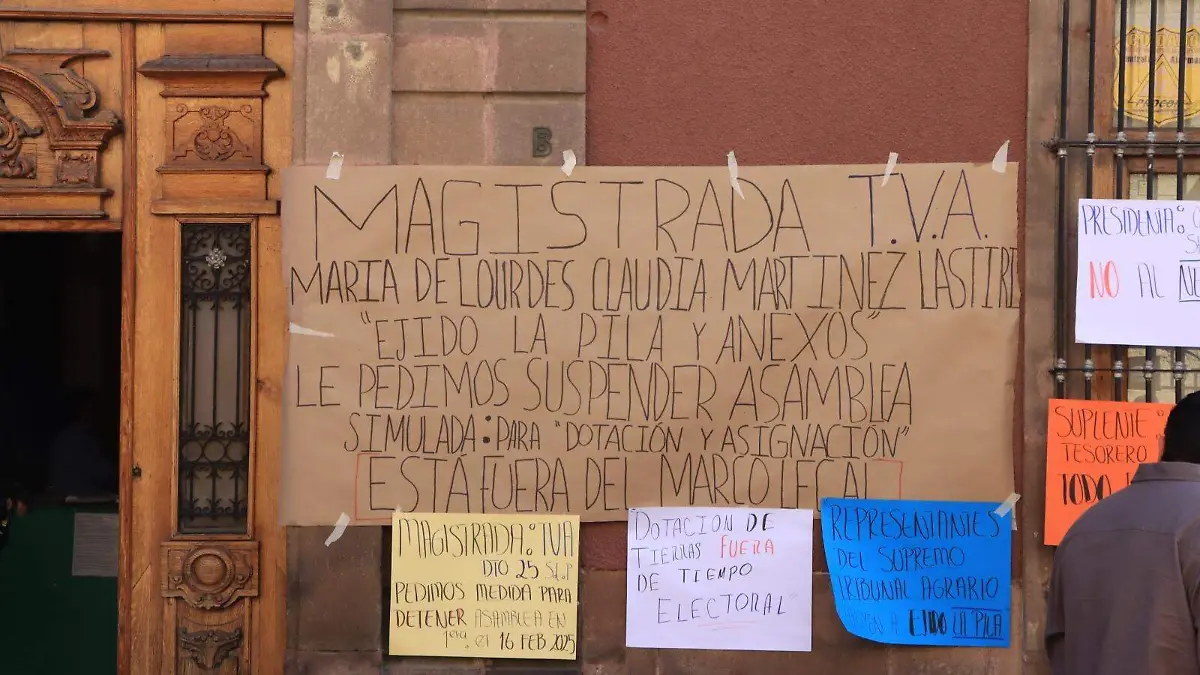 MAGISTRADA T.V.A.
MARIA DE LOURDES CLAUDIA MARTINEZ LASTIRI
"EJIDO LA PILA Y ANEXOS"
LE PEDIMOS SUSPENDER ASAMBLEA
SIMULADA: PARA "DOTACIÓN Y ASIGNACIÓN"
ESTÁ FUERA DEL MARCO LEGAL
B
MAGISTRADA: TUA
DTO 25 S.L.P
PEDIMOS MEDIDA PARA
DETENER ASAMBLEA EN
16 FEB 2025
DOTACION DE
TIERRAS FUERA
DE TIEMPO
ELECTORAL"
REPRESENTANTES
DEL SUPREMO
TRIBUNAL AGRARIO
A EJIDO LA PILA
PRESIDENTA:
NO AL
SUPLENTE
TESORERO
TODO